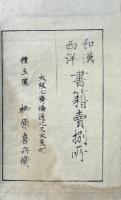 和漢
西洋
書籍賣捌所
大阪心齋橋通北久太良町
積玉圃
柳原喜兵衛